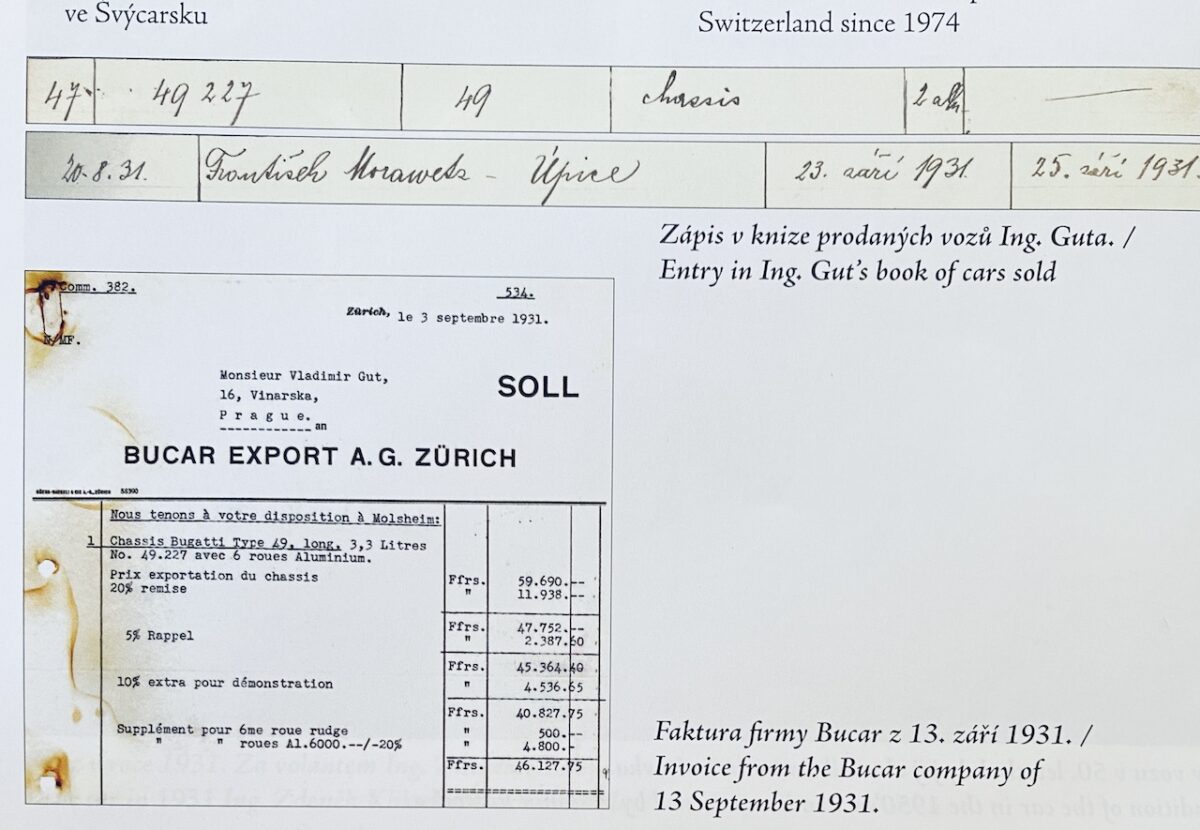 ve Švýcarsku
Switzerland since 1974
47 49 227 49 chassis
20.8.31. František Morawetz - Úpice 23. září 1931 25. září 1931.
Zápis v knize prodaných vozů Ing. Guta. /
Entry in Ing. Gut's book of cars sold
Comm. 382.
534.
Zürich, le 3 septembre 1931.
N/MF.
Monsieur Vladimir Gut,
16, Vinarska,
Prague.
an
SOLL
BUCAR EXPORT A.G. ZÜRICH
Nous tenons à votre disposition à Molsheim:
1 Chassis Bugatti Type 49, long, 3,3 Litres
No. 49.227 avec 6 roues Aluminium.
Prix exportation du chassis Ffrs. 59.690.--
20% remise " 11.938.--
Ffrs. 47.752.--
5% Rappel " 2.387.60
Ffrs. 45.364.40
10% extra pour démonstration " 4.536.65
Ffrs. 40.827.75
Supplément pour 6me roue rudge " 500.--
" " roues Al.6000.--/-20% " 4.800.-
Ffrs. 46.127.75
Faktura firmy Bucar z 13. září 1931. /
Invoice from the Bucar company of
13 September 1931.